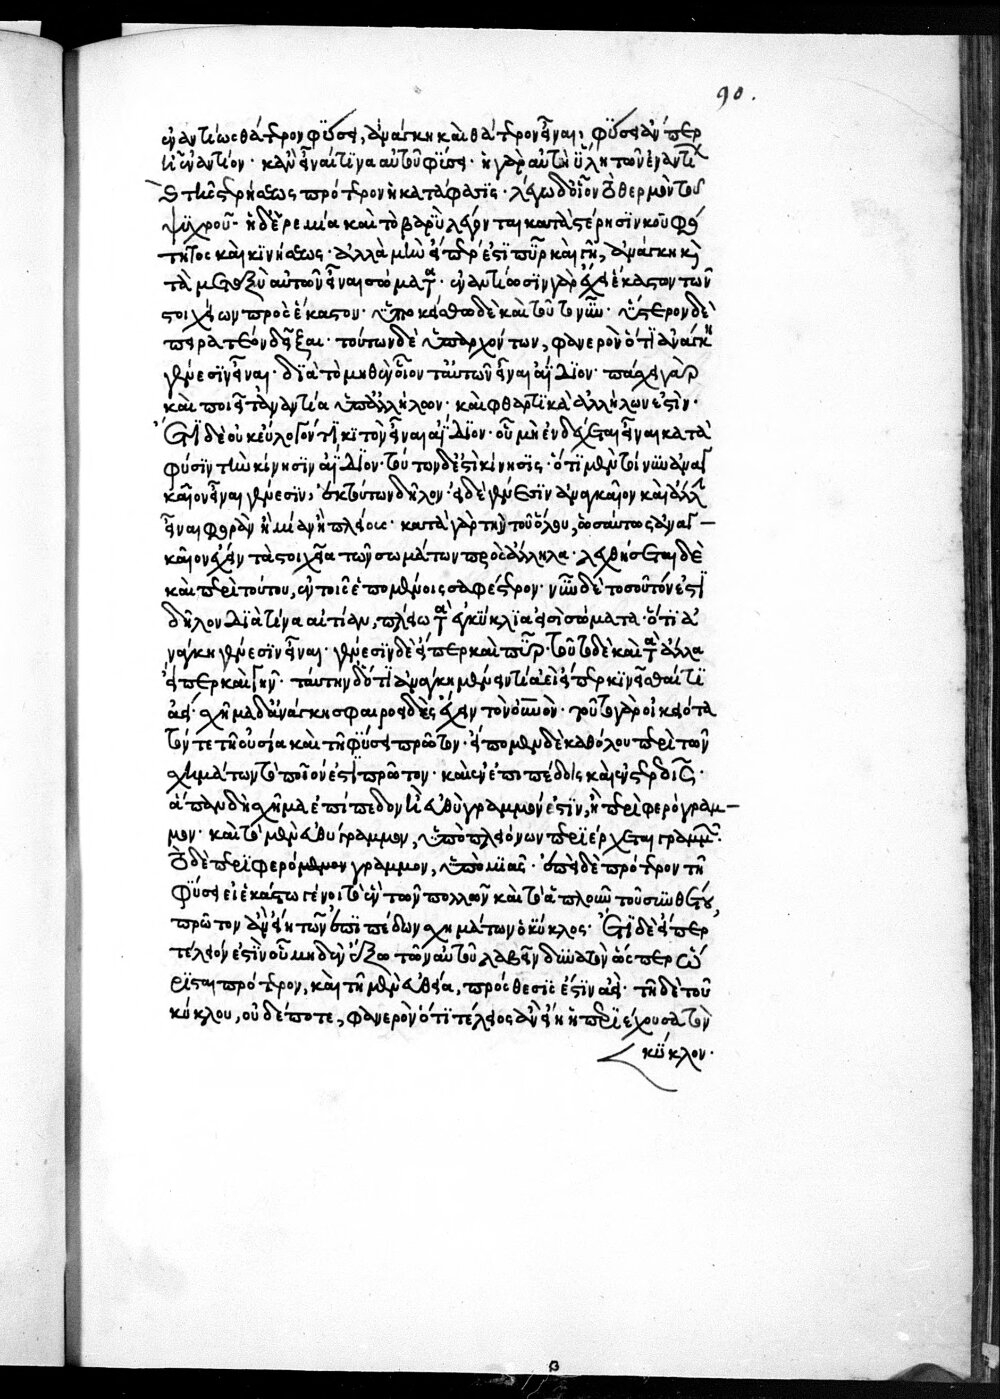 90.
ἐναντίων θάτερον φύσει, ἀνάγκη καὶ θάτερον εἶναι φύσει ἐάν περ
ᾖ ἐναντίον· καὶ εἶναί τινα αὐτοῦ φύσιν· ἡ γὰρ αὐτὴ ὕλη τῶν ἐναντίων
καὶ τῆς στερήσεως πρότερον ἡ κατάφασις· λέγω δ' οἷον τὸ θερμὸν τοῦ
ψυχροῦ· ἡ δ' ἠρεμία καὶ τὸ βαρὺ λέγονται κατὰ στέρησιν κουφό
τητος καὶ κινήσεως· ἀλλὰ μὴν εἴπερ ἐστὶ πῦρ καὶ γῆ, ἀνάγκη καὶ
τὰ μεταξὺ αὐτῶν εἶναι σώματα· ἐναντίωσιν γὰρ ἔχει ἕκαστον τῶν
στοιχείων πρὸς ἕκαστον· ὑποκείσθω δὲ καὶ τοῦτο νῦν· ὕστερον δὲ
πειρατέον δεῖξαι· τούτων δὲ ὑπαρχόντων, φανερὸν ὅτι ἀνάγκη
γένεσιν εἶναι· διὰ τὸ μηθὲν οἷον τ' αὐτῶν εἶναι ἀΐδιον· πάσχει γὰρ
καὶ ποιεῖ τἀναντία ὑπ' ἀλλήλων· καὶ φθαρτικὰ ἀλλήλων ἐστίν·
Ἔτι δὲ οὐκ εὔλογον τὶ κινητὸν εἶναι ἀΐδιον· οὗ μὴ ἐνδέχεται εἶναι κατὰ
φύσιν τὴν κίνησιν ἀΐδιον· τούτων δ' ἐστὶ κίνησις· ὅτι μὲν τοίνυν ἀναγ
καῖον εἶναι γένεσιν, ἐκ τούτων δῆλον· εἰ δὲ γένεσιν ἀναγκαῖον καὶ ἄλλην
εἶναι φορὰν ἢ μίαν ἢ πλείους· κατὰ γὰρ τὴν τοῦ ὅλου, ὡσαύτως ἀναγ–
καῖον ἔχειν τὰ στοιχεῖα τῶν σωμάτων πρὸς ἄλληλα· λεχθήσεται δὲ
καὶ περὶ τούτου, ἐν τοῖς ἑπομένοις σαφέστερον· νῦν δὲ τοσοῦτόν ἐστι
δῆλον διὰ τίνα αἰτίαν, πλείω τὰ ἐγκύκλιά ἐστι σώματα· ὅτι ἀ
νάγκη γένεσιν εἶναι· γένεσιν δὲ εἴπερ καὶ πῦρ· τοῦτο δὲ καὶ τὰ ἄλλα
εἴπερ καὶ γῆν· ταύτην δ' ὅτι ἀνάγκη μένειν τι ἀεὶ εἴπερ κινεῖσθαί τι
ἀεί· σχῆμα δ' ἀνάγκη σφαιροειδὲς ἔχειν τὸν οὐρανόν· τοῦτο γὰρ οἰκειότα
τόν τε τῇ οὐσίᾳ καὶ τῇ φύσει πρῶτον· εἴπωμεν δὲ καθόλου περὶ τῶν
σχημάτων τὸ ποῖόν ἐστι πρῶτον· καὶ ἐν ἐπιπέδοις καὶ ἐν στερεοῖς·
ἅπαν δὴ σχῆμα ἐπίπεδον ἢ εὐθύγραμμόν ἐστιν, ἢ περιφερόγραμ–
μον· καὶ τὸ μὲν εὐθύγραμμον, ὑπὸ πλειόνων περιέρχεται γραμμῶν·
τὸ δὲ περιφερόμενον γραμμον, ὑπὸ μιᾶς· ἐπεὶ δὲ πρότερον τῇ
φύσει ἐν ἑκάστῳ γένει τὸ ἓν τῶν πολλῶν καὶ τὸ ἁπλοῦν τοῦ συνθέτου,
πρῶτον ἂν εἴη τῶν ἐπιπέδων σχημάτων ὁ κύκλος· Ἔτι δὲ εἴπερ
τέλειόν ἐστιν οὗ μηδὲν ἔξω τῶν αὐτοῦ λαβεῖν δυνατὸν ὥσπερ ὥ
ρισται πρότερον, καὶ τῇ μὲν εὐθείᾳ, πρόσθεσίς ἐστιν ἀεί· τῇ δὲ τοῦ
κύκλου, οὐδέποτε, φανερὸν ὅτι τέλειος ἂν εἴη ἡ περιέχουσα τὸν
κύκλον·